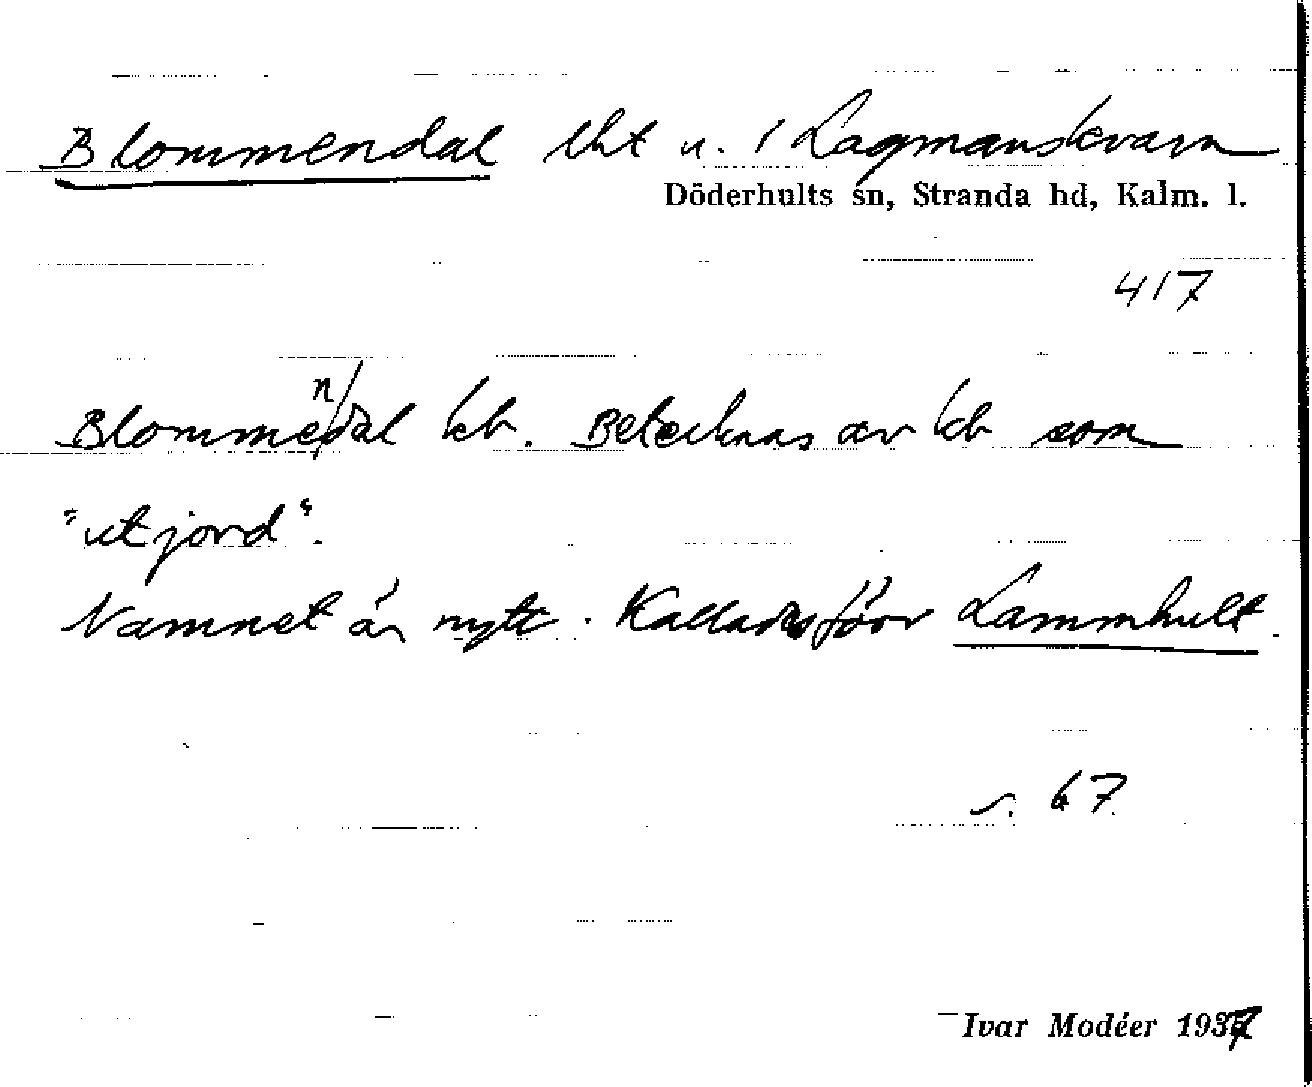 Blommendal lht u. 1 Lagmanskvarn
Döderhults sn, Stranda hd, Kalm. l.
417
Blommendal kb. Betecknas av kb som
"utjord".
Namnet är nytt. Kallades förr Lammhult.
s. 67.
Ivar Modéer 1937